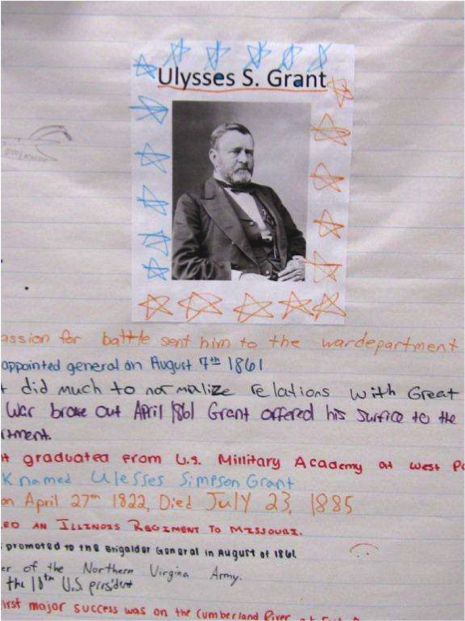 Ulysses S. Grant
assion for battle sent him to the wardepartment
appointed general on August 7th 1861
did much to normalize relations with Great
War broke out April 1861 Grant offered his surfice to the
rtment.
graduated from U.S. Millitary Academy at West Po
k named Ulesses Simpson Grant
on April 27th 1822, Died July 23, 1885
ED AN ILLINOIS REGIMENT TO MISSOURI.
promoted to the Brigaider General in August of 1861
er of the Northern Virgina Army.
the 18th U.S. president
irst major success was on the Cumberland River at